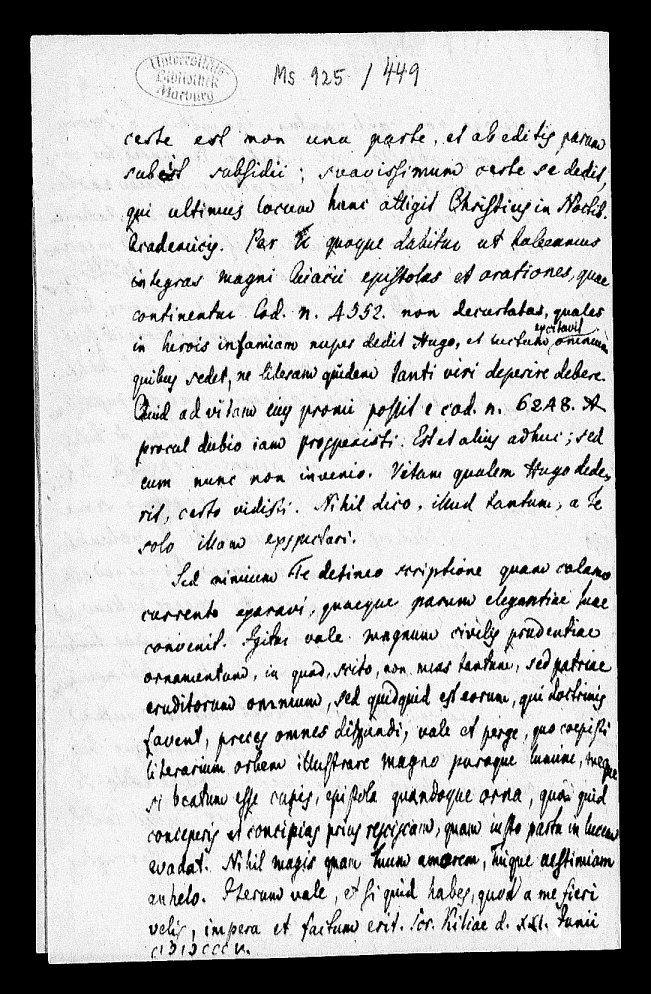 Universitäts
Bibliothek
Marburg
Ms 925 / 449
certe est non una parte, et ab editis parum
subest subsidii; suavissimum certe se dedit,
qui ultimus locum hunc attigit Christius in Noctib.
Academicis. Par quoque labitur ut habeamus
integras magni epistolas et orationes, quae
continentur Cod. n. 4552. non decurtatas, quales
in herois infamiam nuper dedit Hugo, et excitavit omnium
quibus sedet, ne literam quidem tanti viri deperire debere.
Quid ad vitam eius promi possit e cod. n. 6248. A
procul dubio iam prospexisti. Est et alius adhuc; sed
eum nunc non invenio. Vitam qualem Hugo dede,
rit, certo vidisti. Nihil dico, illud tantum, a Te
solo illam exspectari.
Sed nimium Te detineo scriptione quam calamo
currente exaravi, quaeque parum elegantiae tuae
convenit. Igitur vale magnum civilis prudentiae
ornamentum, in quod, scito, non meas tantum, sed patriae
eruditorum omnium, sed quidquid est eorum, qui doctrinis
favent, preces omnes diffundi, vale et perge, quo coepisti
literarium orbem illustrare magno puroque lumine, meque
si beatum esse cupis, epistola quandoque orna, quo quid
conceperis et concipias prius resciscam, quam iusto partu in lucem
evadat. Nihil magis quam tuum amorem, tuique aestimiam
anhelo. Iterum vale, et si quid habes, quod a me fieri
velis, impera et factum erit. Scr. Kiliae d. XXI. Junii